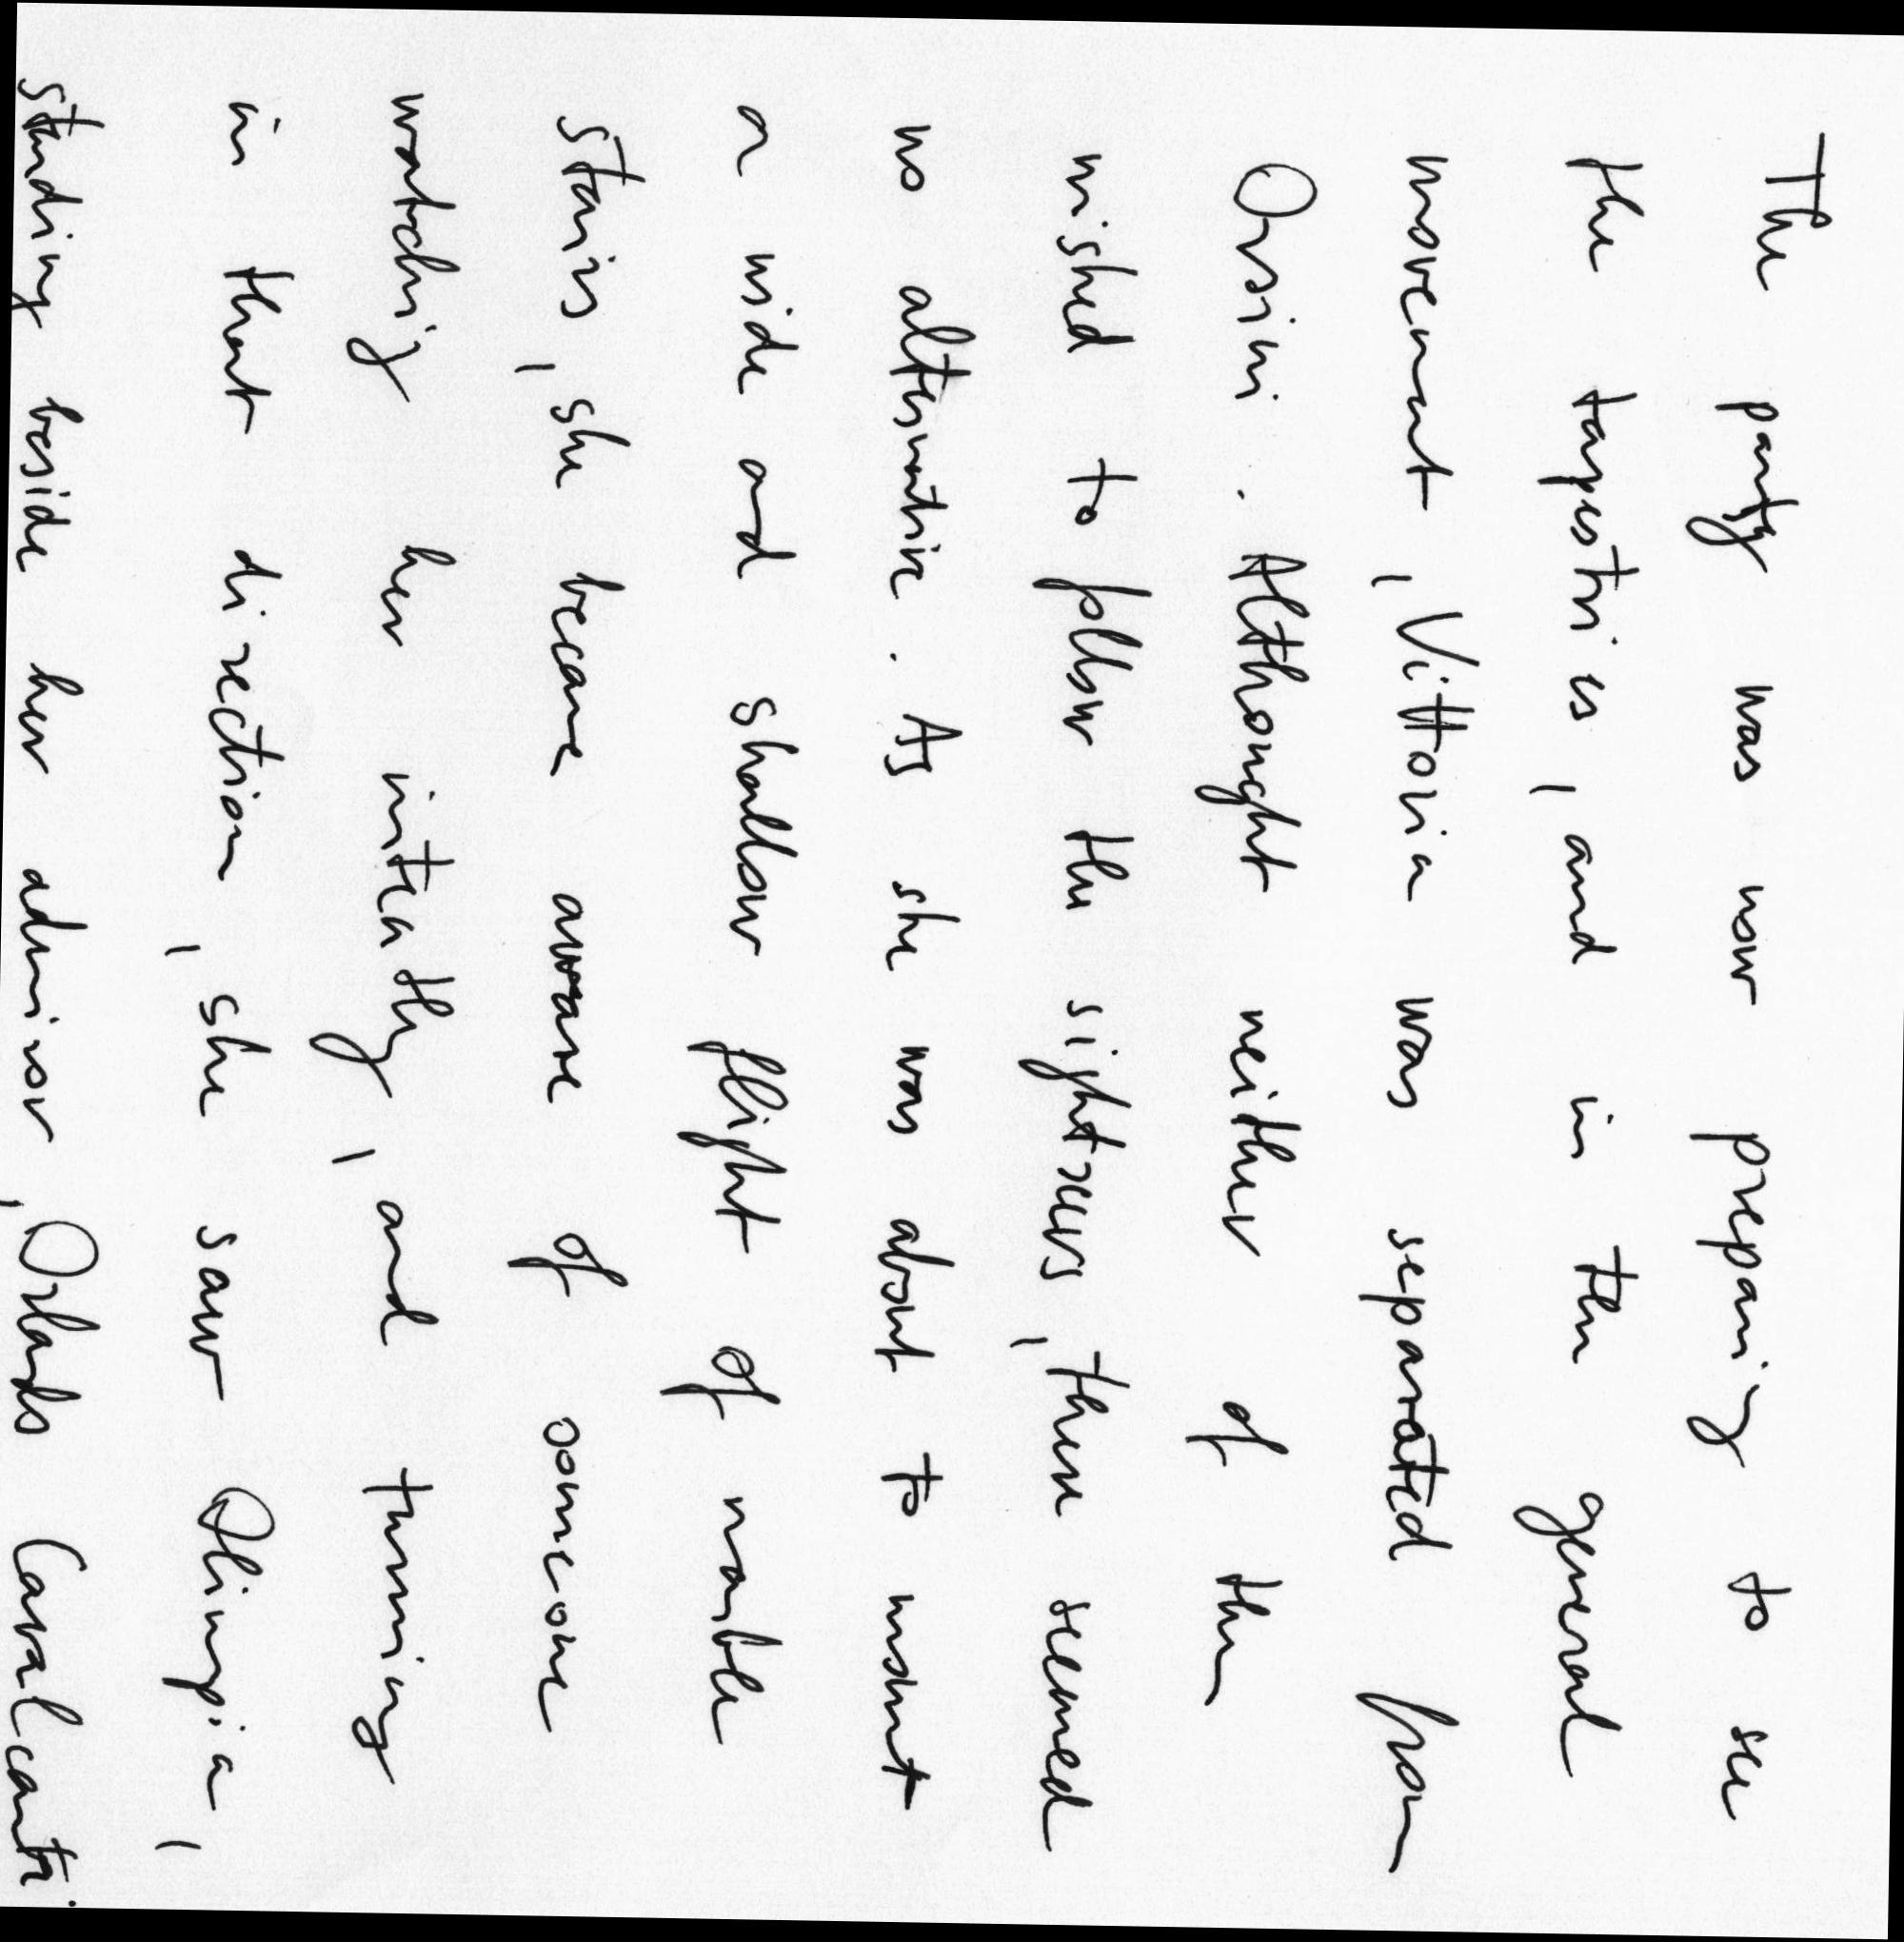 The party was now preparing to see
the tapestries, and in the general
movement, Vittoria was separated from
Orsini. Althought neither of them
wished to follow the sightseers, there seemed
no alternative. As she was about to mount
a wide and shallow flight of marble
stairs, she became aware of someone
watching her intently, and turning
in that direction, she saw Olimpia,
standing beside her admiror, Orlando Cavalcanti.